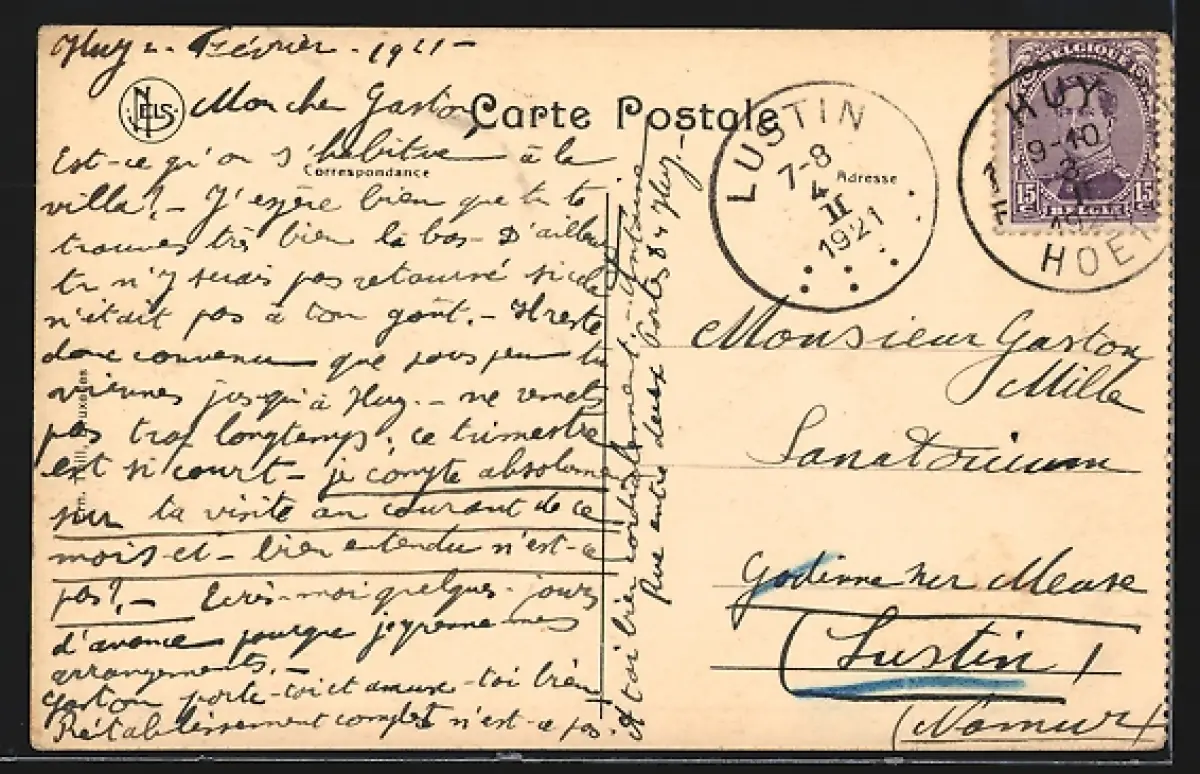 Huy 2. Février - 1921 -
NELS
Mon cher Gaston
Carte Postale
Correspondance
Est-ce qu'on s'habitue à la
villa? - J'espère bien que tu te
trouves très bien là bas - D'ailleurs
tu n'y serais pas retourné si cela
n'était pas à ton goût. - Il reste
donc convenu que sous peu tu
viennes jusqu'à Huy. - ne remets
pas trop longtemps. ce trimestre
est si court - je compte absolume
sur ta visite au courant de ce
mois-ci - bien entendu n'est-ce
pas? - Ecris-moi quelques jours
d'avance pourque je prenne mes
arrangements. -
Gaston porte-toi et amuse-toi bien
Rétablissement complet n'est-ce pas.
A toi bien cordialement. - Antoine
Rue entre deux Portes 84 Huy. -
LUSTIN
7-8
4
II
1921
Adresse
BELGIQUE
15 15
BELGIË
HUY
9-10
HOEI
Monsieur Gaston
Mille
Sanatorium
Godinne sur Meuse
(Lustin)
(Namur)